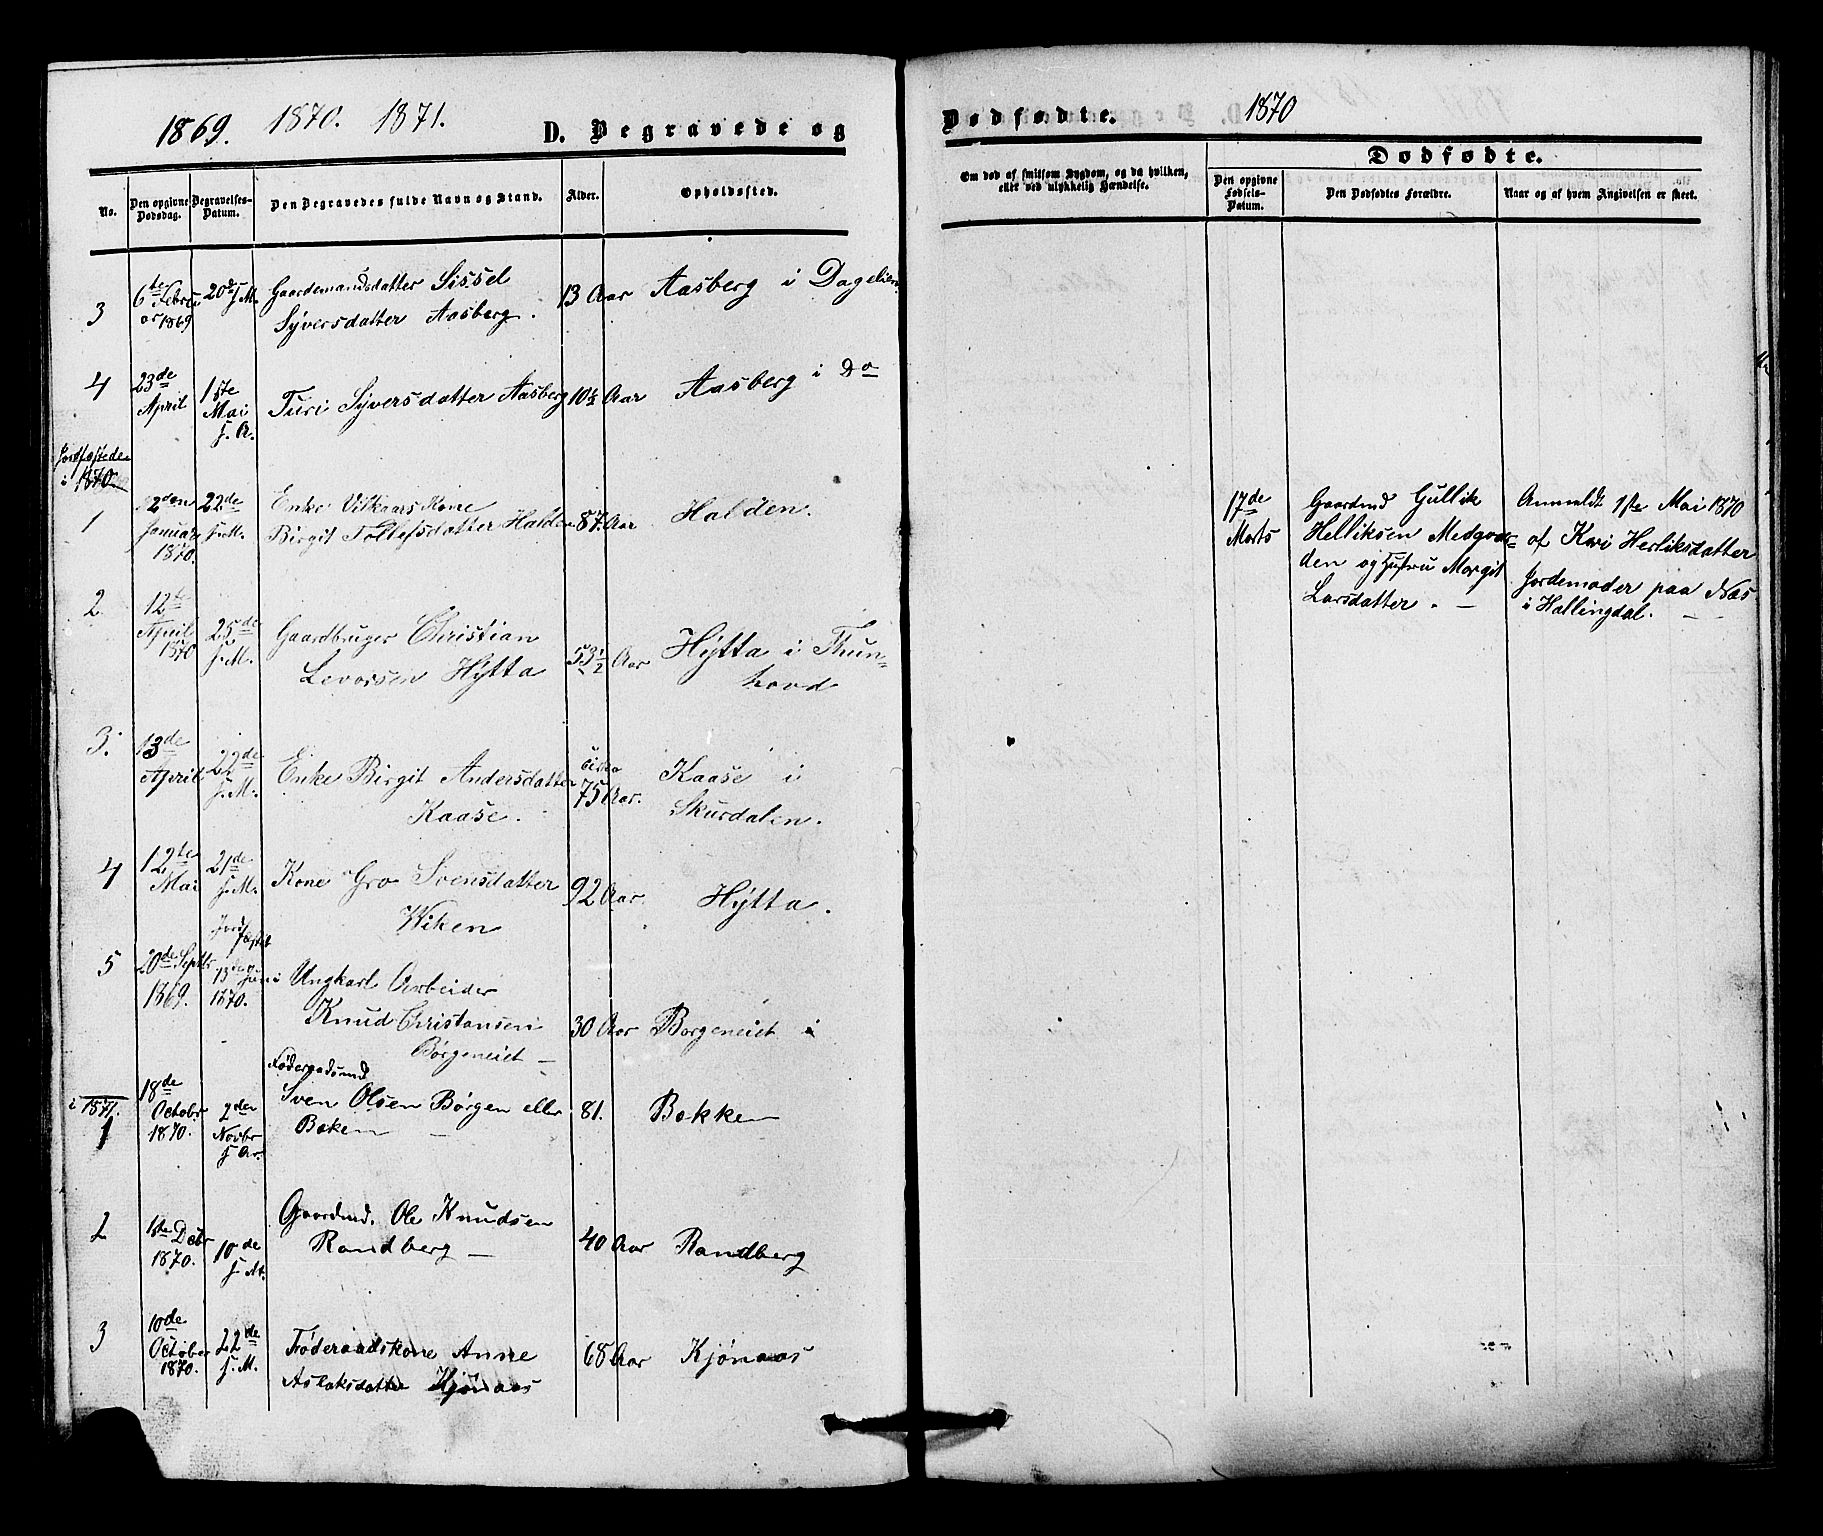 1869. 1870. 1871.
D. Begravede og
No.
Den opgivne Dødsdag.
Begravelses-Datum.
Den Begravedes fulde Navn og Stand.
Alder.
Opholdssted.
3
6te Februar 1869
20de f. M.
Gaardemandsdatter Sissel
Syversdatter Aasberg.
13 Aar
Aasberg i Dagelien
4
23de April
1ste Mai f. A.
Turi Syversdatter Aasberg
10½ Aar
Aasberg i Do
Jordfæstede
i 1870
1
2den Januar 1870.
22de f. M.
Enke Vilkaars Kone
Birgit Tollefsdatter Halden
87. Aar
Halden.
2
12te April 1870
25de f. M.
Gaardbruger Christian
Levorsen Hÿtta
53½ Aar
Hÿtta i Thun-
hovd
3.
13de April
22de f. M.
Enke Birgit Andersdatter
Kaase.
cirka 75 Aar.
Kaase i
Skurdalen.
4
12te Mai
21de f. M.
Kone Gro Svensdatter
Wiken
92 Aar.
Hÿtta.
5
20de Septbr 1869.
Jordfæstet 13de Juni 1870.
Ungkarl Arbeider
Knud Christansen
Børgeneiet
30 Aar
Borgeneiet i
i 1871.
1
18de Octobr 1870.
2den Novbr f. Ar.
Føderaadsmd
Sven Olsen Børgen eller
Boken
81.
Bokken
2
1ste Debr 1870.
10de f. Ar.
Gaardmd. Ole Knudsen
Randberg
40 Aar
Randberg
3
10de October 1870.
22de f. M.
Føderaadskone Anne
Aslaksdatter Kjønaas
68 Aar
Kjønaas
Dødfødte. 1870
Om død af smitsom Sygdom, og da hvilken,
eller ved ulykkelig Hændelse.
Dødfødte.
Den opgivne Fødsels-Datum.
Den Dødfødtes Forældre.
Naar og af hvem Angivelsen er skeet.
17de Marts
Gaardmd Gullik
Helliksen Medgaar-
den og Hustru Margit
Larsdatter.
Anmeldt 1ste Mai 1870
af Kari Herliksdatter
Jordemoder paa Næs
i Hallingdal.